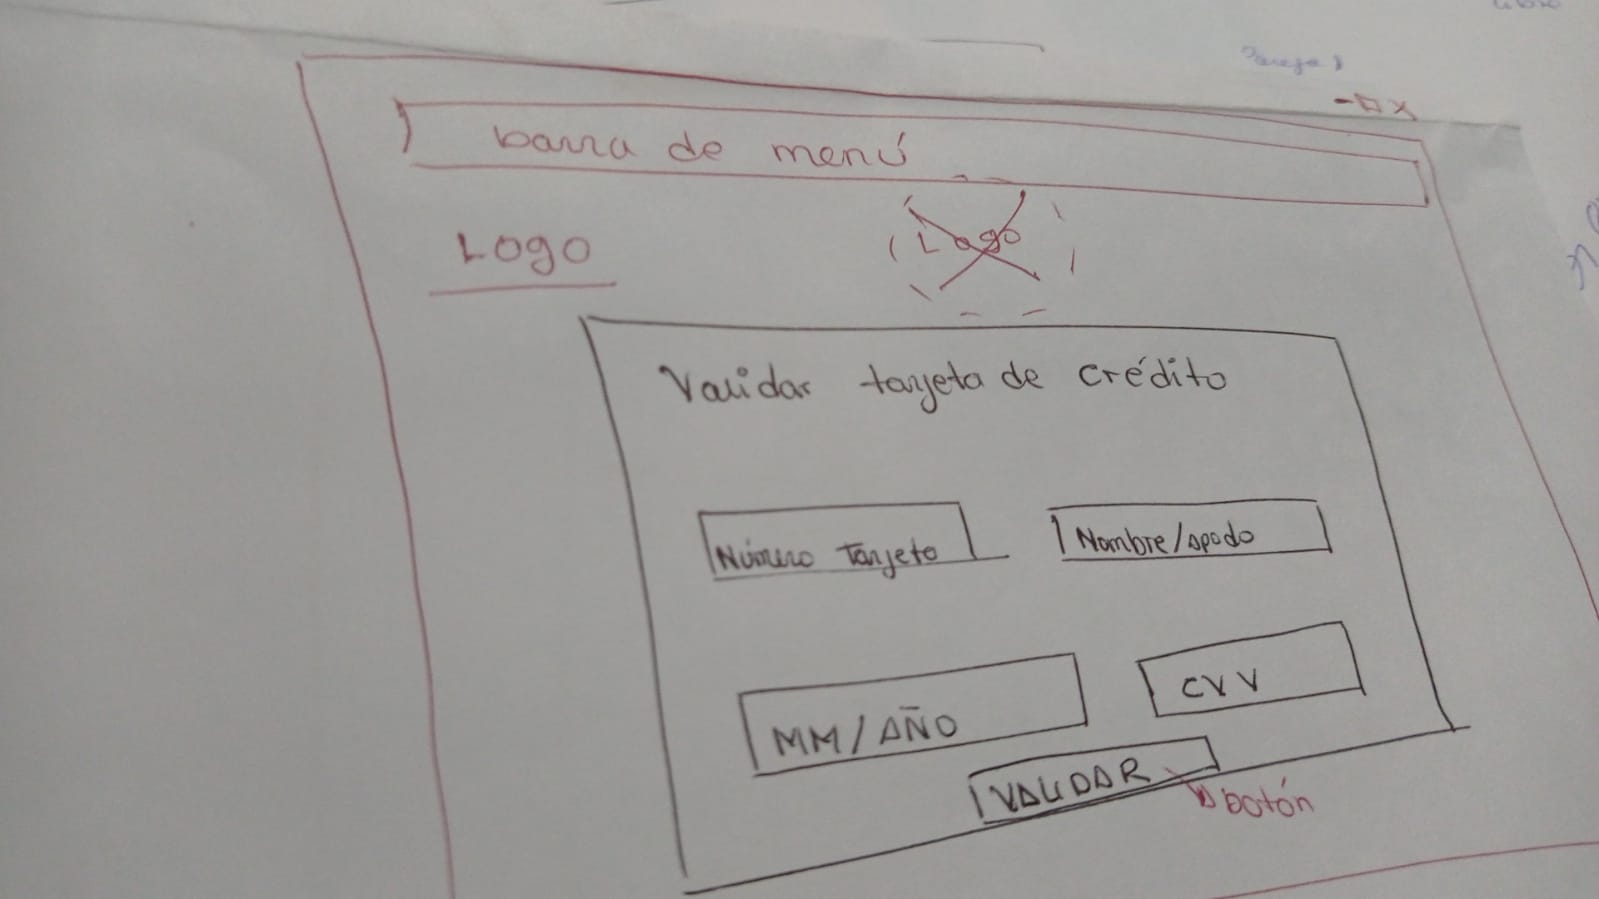 barra de menú
Logo
Logo
Validar tarjeta de crédito
Número Tarjeta
Nombre/apodo
MM/AÑO
CVV
VALIDAR
botón